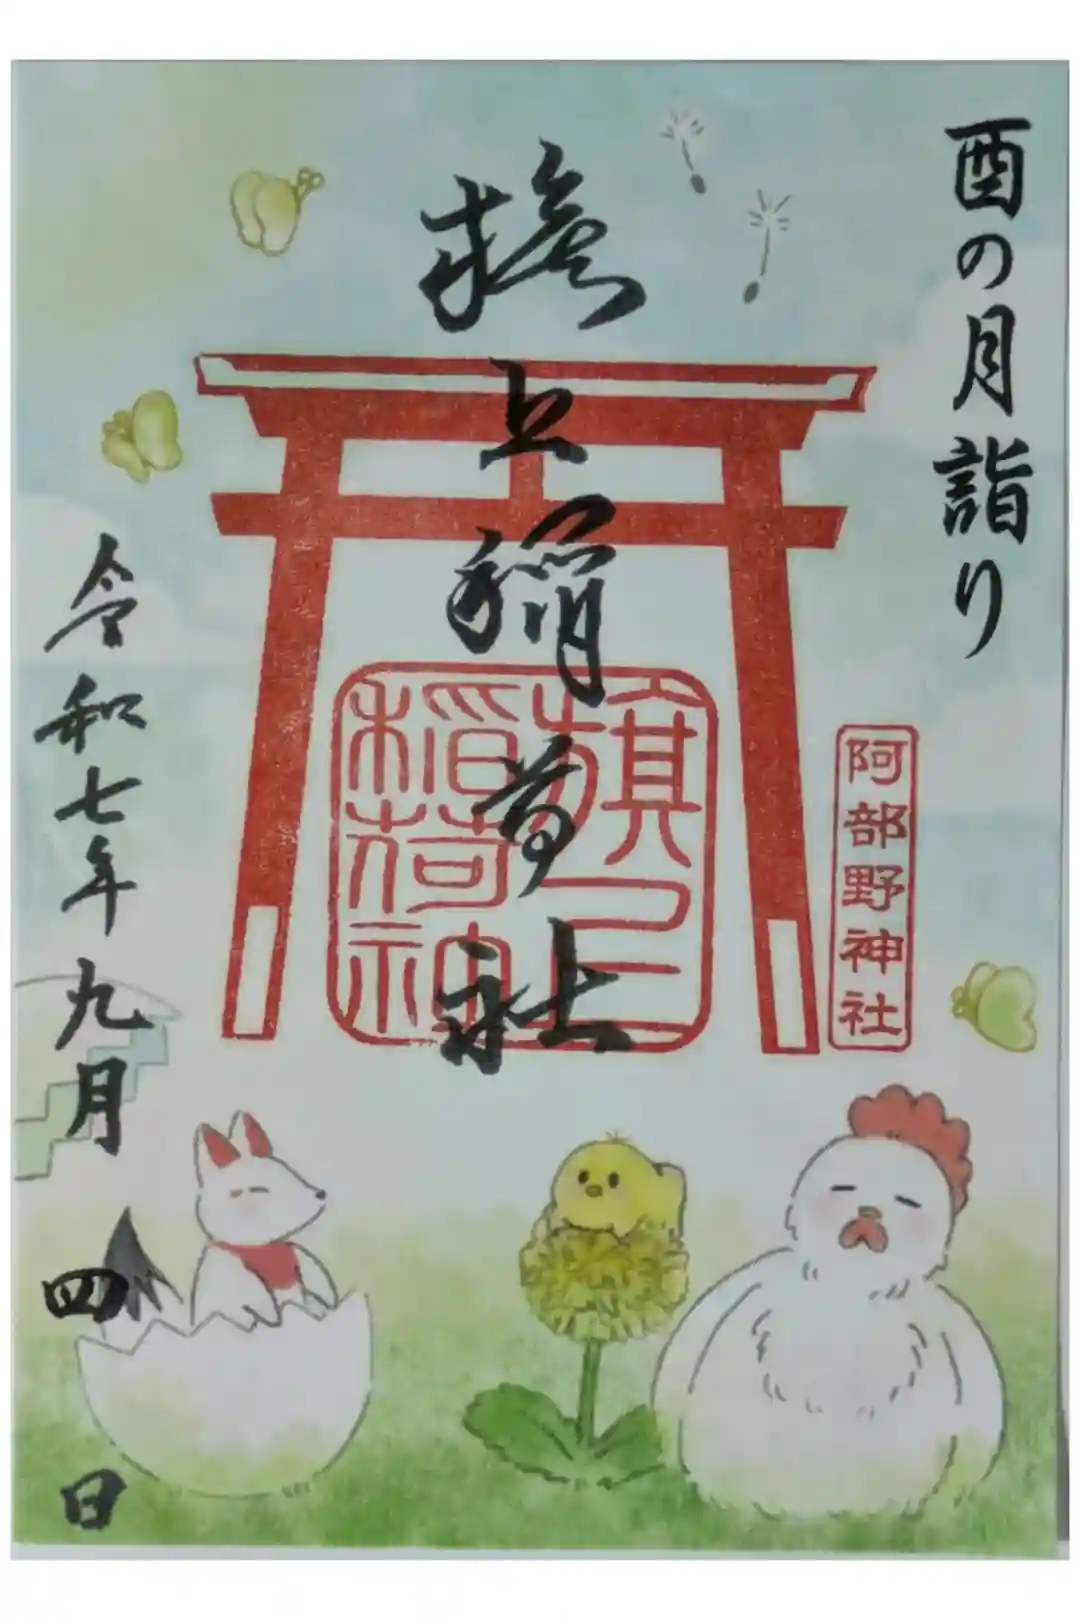 酉の月詣り
旗上稲荷社
旗上
稲荷
神
阿部野神社
令和七年九月四日